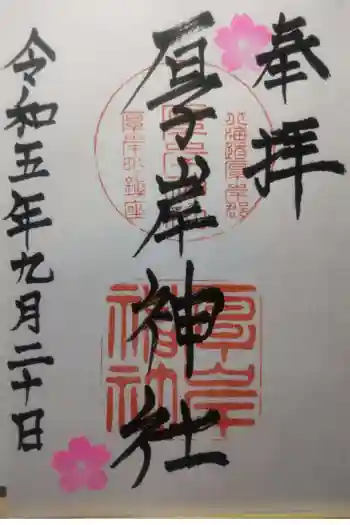 奉拝
北海道厚岸郡
厚岸神社
厚岸神社
令和五年九月二十日